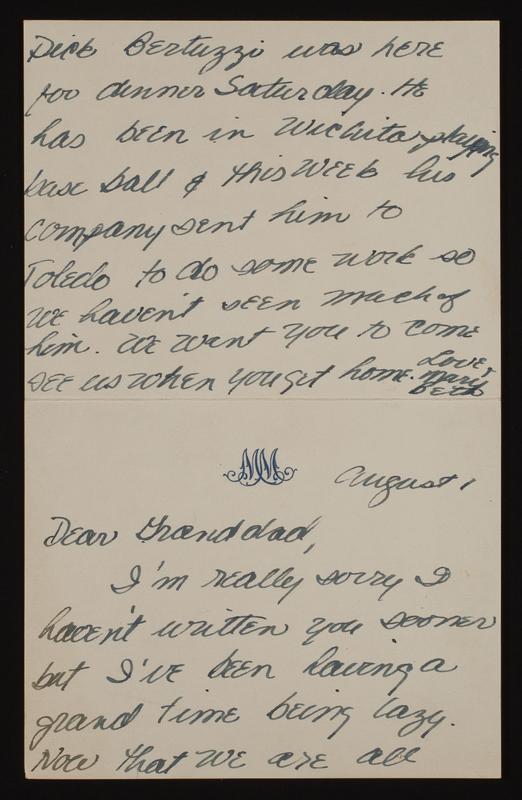 Dick Bertuzzi was here
for dinner Saturday. He
has been in Wichita playing
base ball & this week his
company sent him to
Toledo to do some work so
we haven't seen much of
him. We want you to come
see us when you get home. Love,
Mary
Beth
MM
August 1
Dear Granddad,
I'm really sorry I
haven't written you sooner
but I've been having a
grand time being lazy.
Now that we are all